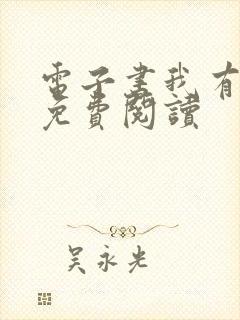 電子書我有
免費閱讀
吳永光